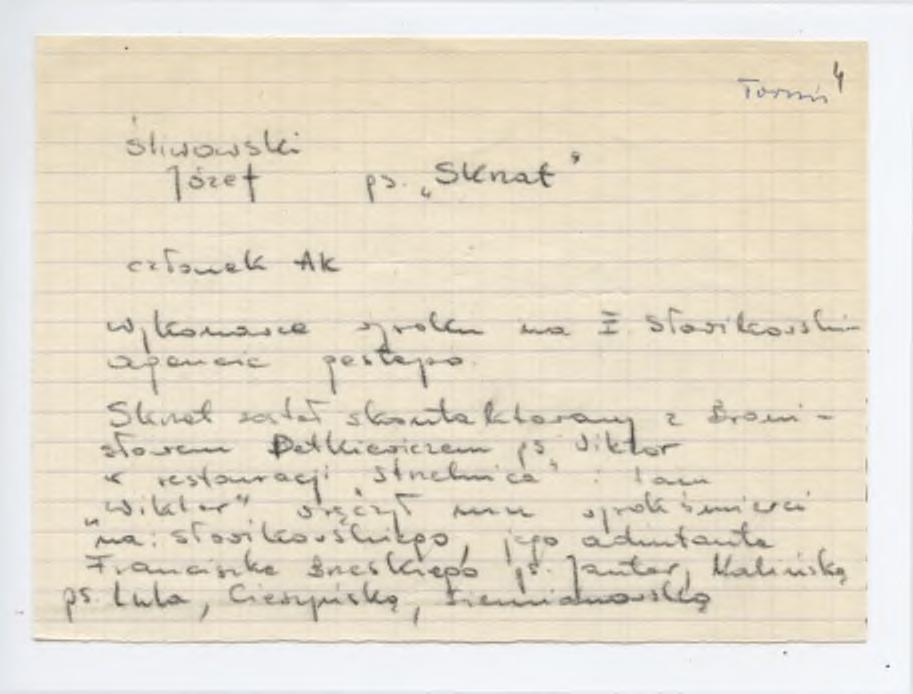 4
Toruń
Śliwowski
Józef ps. „Sknat"
członek AK
wykonawca wyroku na I. Słowikowskim
agencie gestapo.
Sknat został skontaktowany z Broni-
sławem Petkiewiczem ps. Wiktor
w restauracji „Strzelnica" i tam
„Wiktor" wręczył mu wyrok śmierci
na: Słowikowskiego, jego adiutanta
Franciszka Brzeskiego ps. Jantar, Kalińską
ps. Luba, Cieszyńską, Siemianowską